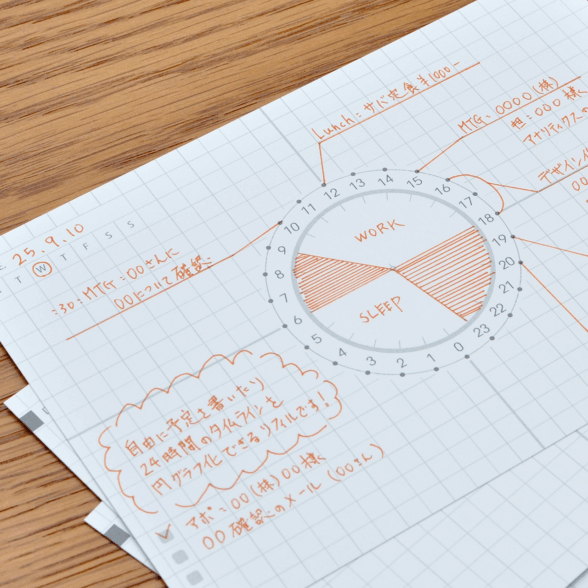 25.9.10
T W T F S S
:30:MTG:〇〇さんに
〇〇について確認
Lunch:サバ定食¥1000-
MTG:〇〇〇〇(株)
担:〇〇〇様
アナリティクス
デザイン
〇〇
WORK
SLEEP
0
1
2
3
4
5
6
7
8
9
10
11
12
13
14
15
16
17
18
19
20
21
22
23
自由に予定を書いたり
24時間のタイムラインを
円グラフ化できるリフィルです!
アポ:〇〇(株)〇〇様
〇〇確認のメール(〇〇さん)